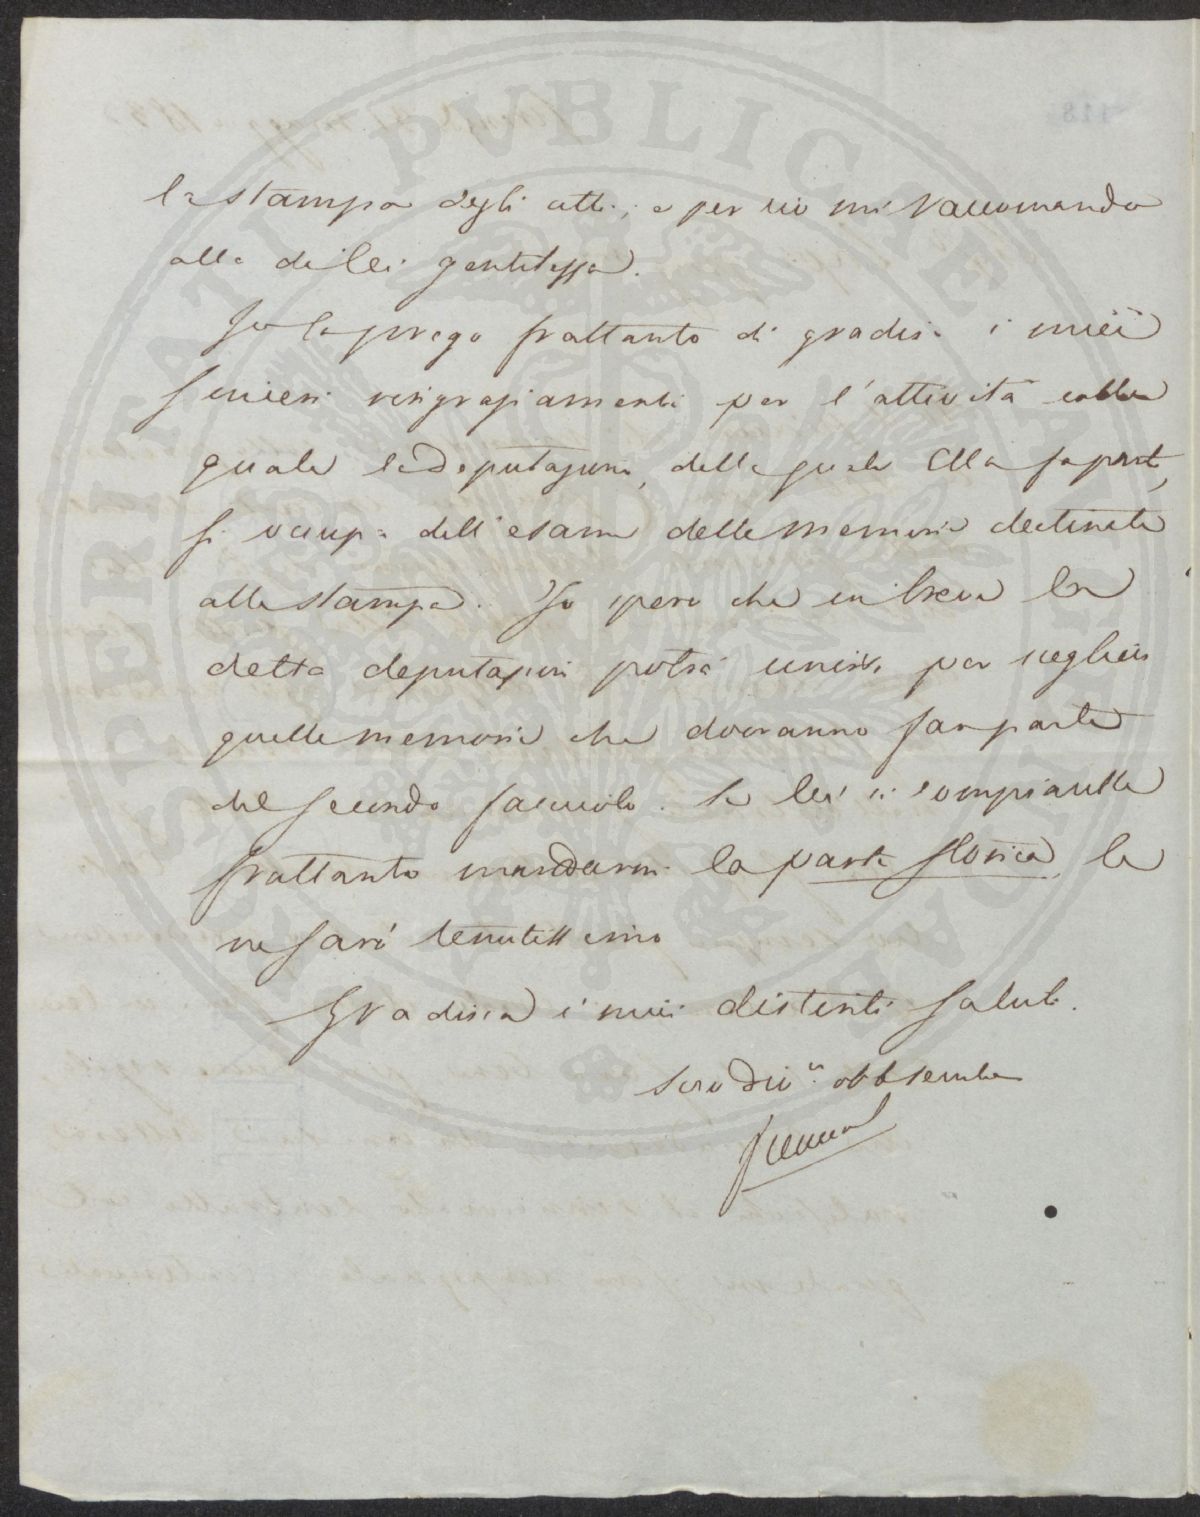 la stampa degli atti; e per ciò mi raccomando
alla di lei gentilezza.
Io la prego frattanto di gradire i miei
sinceri ringraziamenti per l'attività colla
quale la deputazione, della quale Ella fa parte,
si occupa dell'esame delle memorie destinate
alla stampa. Io spero che in breve la
detta deputazione potrà unirsi per scegliere
quelle memorie che dovranno far parte
del secondo fascicolo. Se lei si compiacesse
frattanto mandarmi la parte storica, le
ne sarò tenutissimo
Gradisca i miei distinti saluti.
Suo Dev.
PVBLICAE